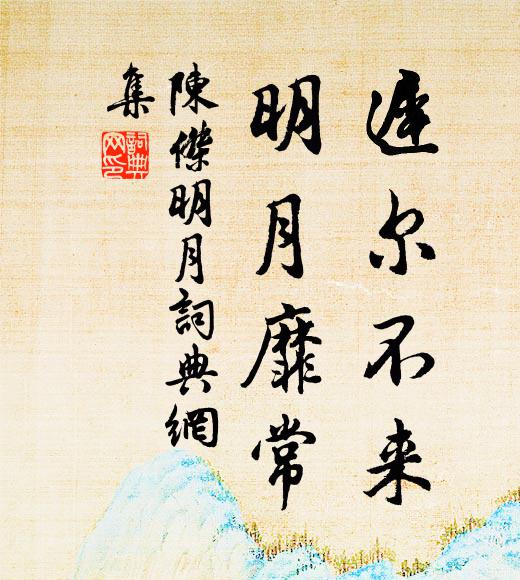 遲尔不来
明月靡常
陳傑明月詞典網
集
詞典
网印